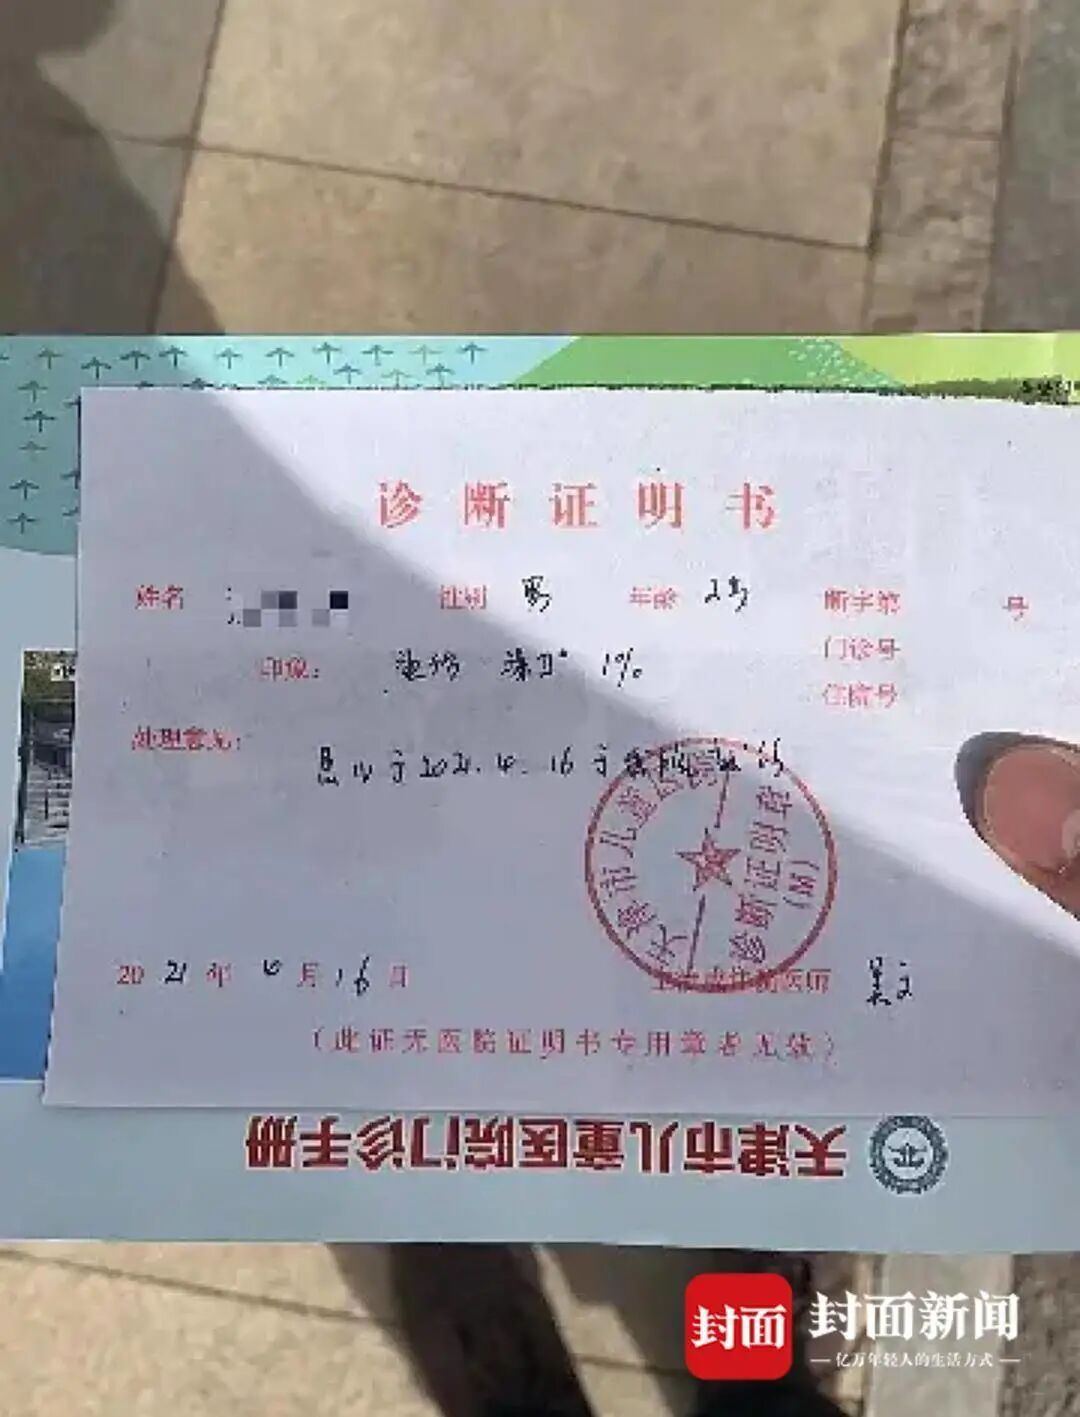 诊断证明书
姓名 性别 男 年龄 2岁 断字第 号
门诊号
印象: 烫伤 深Ⅱ° 1%
住院号
处理意见:
患儿于2021.4.16于我院
天津市儿童医院
诊断证明章
(M)
2021年4月16日
(此证无医院证明书专用章者无效)
天津市儿童医院门诊手册
封面
封面新闻
亿万年轻人的生活方式